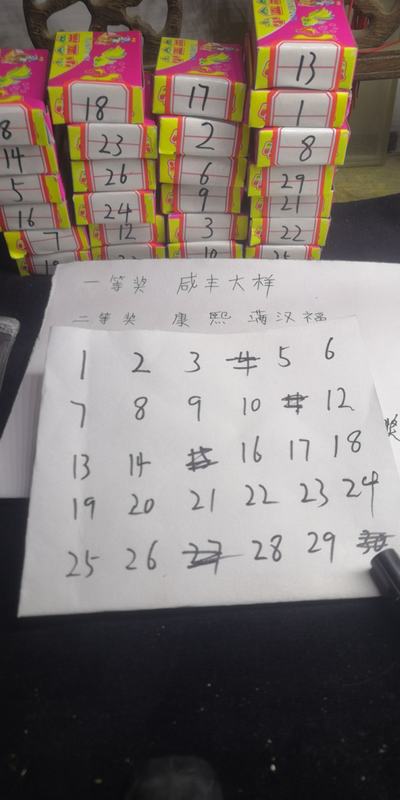 13
18
17
1
8
23
2
8
14
26
6
29
5
24
9
21
16
12
3
22
7
一等奖 咸丰大样
二等奖 康熙满汉福
1 2 3 5 6
7 8 9 10 12
奖
13 14 16 17 18
19 20 21 22 23 24
25 26 27 28 29 30